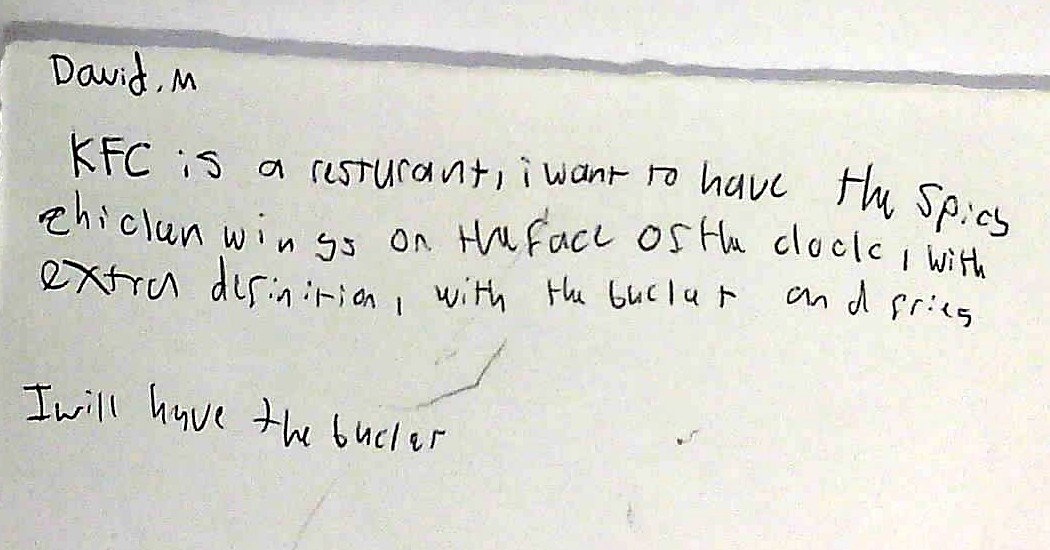 David.M
KFC is a resturant, i want to have the spicy
chicken wings on the face of the clock, with
extra definition, with the bucket and fries
I will have the bucket